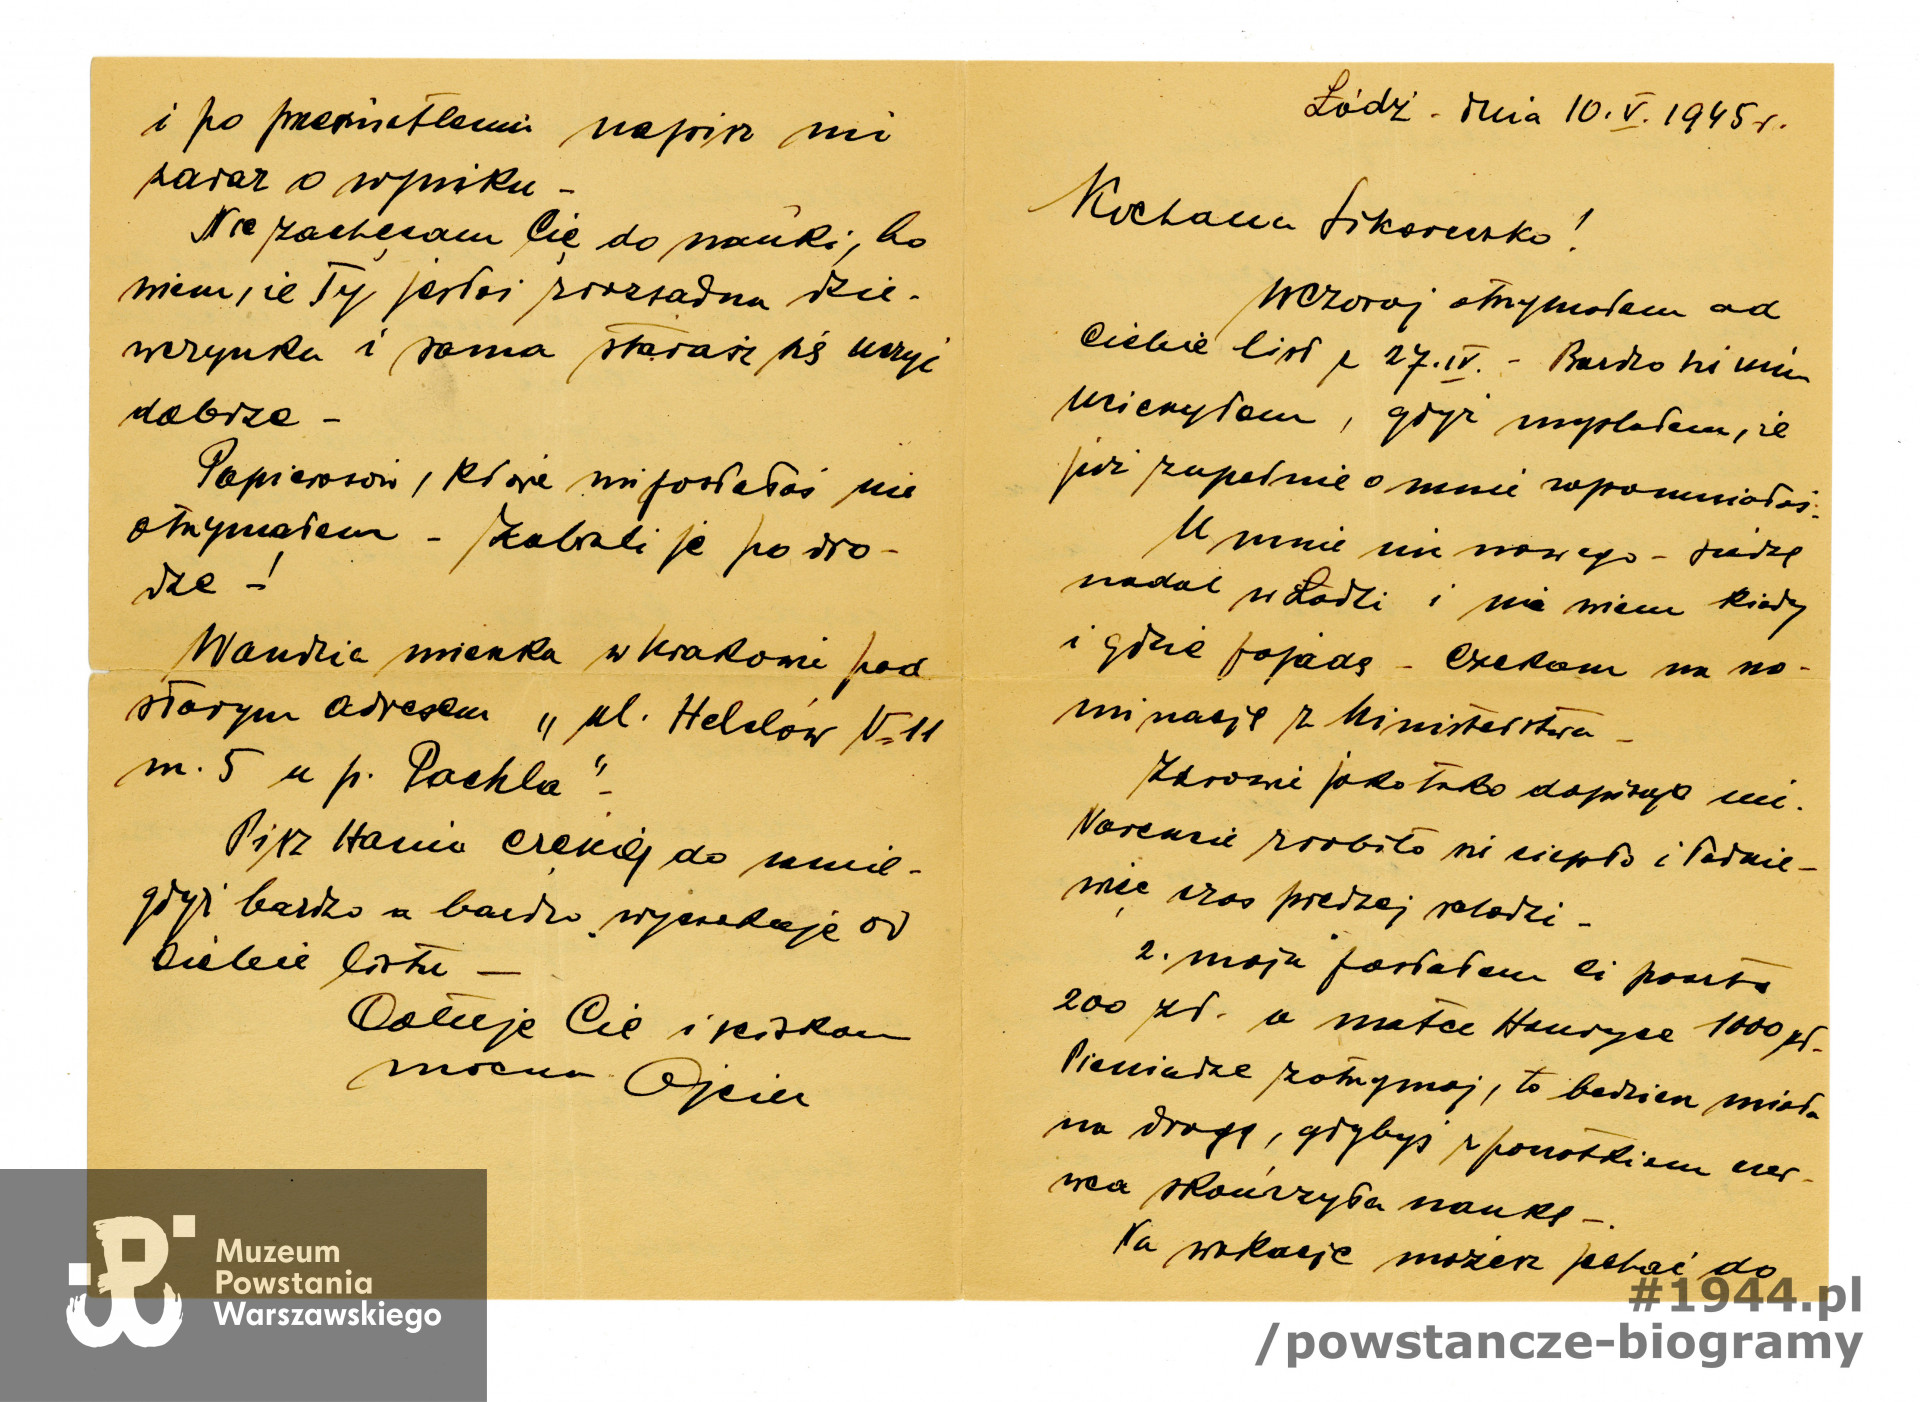 Łódź - dnia 10.V.1945 r.
Kochana Sikoreczko!
Wczoraj otrzymałem od
Ciebie list z 27.IV. - Bardzo się nim
ucieszyłem, gdyż myślałem, że
już zupełnie o mnie zapomniałaś.
U mnie nic nowego - siedzę
nadal w Łodzi i nie wiem kiedy
i gdzie pojadę - Czekam na no-
minację z Ministerstwa -
Zdrowie jako tako dopisuje mi.
Nareszcie zrobiło się ciepło i ładnie -
więc czas prędzej schodzi -
2. maja posłałem Ci pocztą
200 zł. a matce 1000 zł.
Pieniądze zatrzymaj, to będziesz miała
na drogę, gdybyś z początkiem czer-
wca skończyła naukę -.
Na wakacje możesz jechać do
i po prześwietleniu napisz mi
zaraz o wyniku -
Nie zachęcam Cię do nauki, bo
wiem, że Ty jesteś rozsądna dzie-
wczynka i sama starasz się uczyć
dobrze -
Papierosów, które mi posłałaś nie
otrzymałem - Zabrali je po dro-
dze -!
Wandzia mieszka w Krakowie pod
starym adresem „ul. Helclów 11
m. 5 u p. Pachla" -
Pisz Haniu częściej do mnie -
gdyż bardzo a bardzo wyczekuję od
Ciebie listu —
Całuję Cię i ściskam
mocno Ojciec
Muzeum
Powstania
Warszawskiego
#1944.pl
/powstancze-biogramy